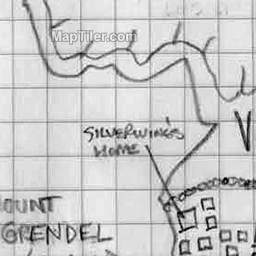 MapTiler.com
SILVERWING'S
HOME
OUNT
GRENDEL